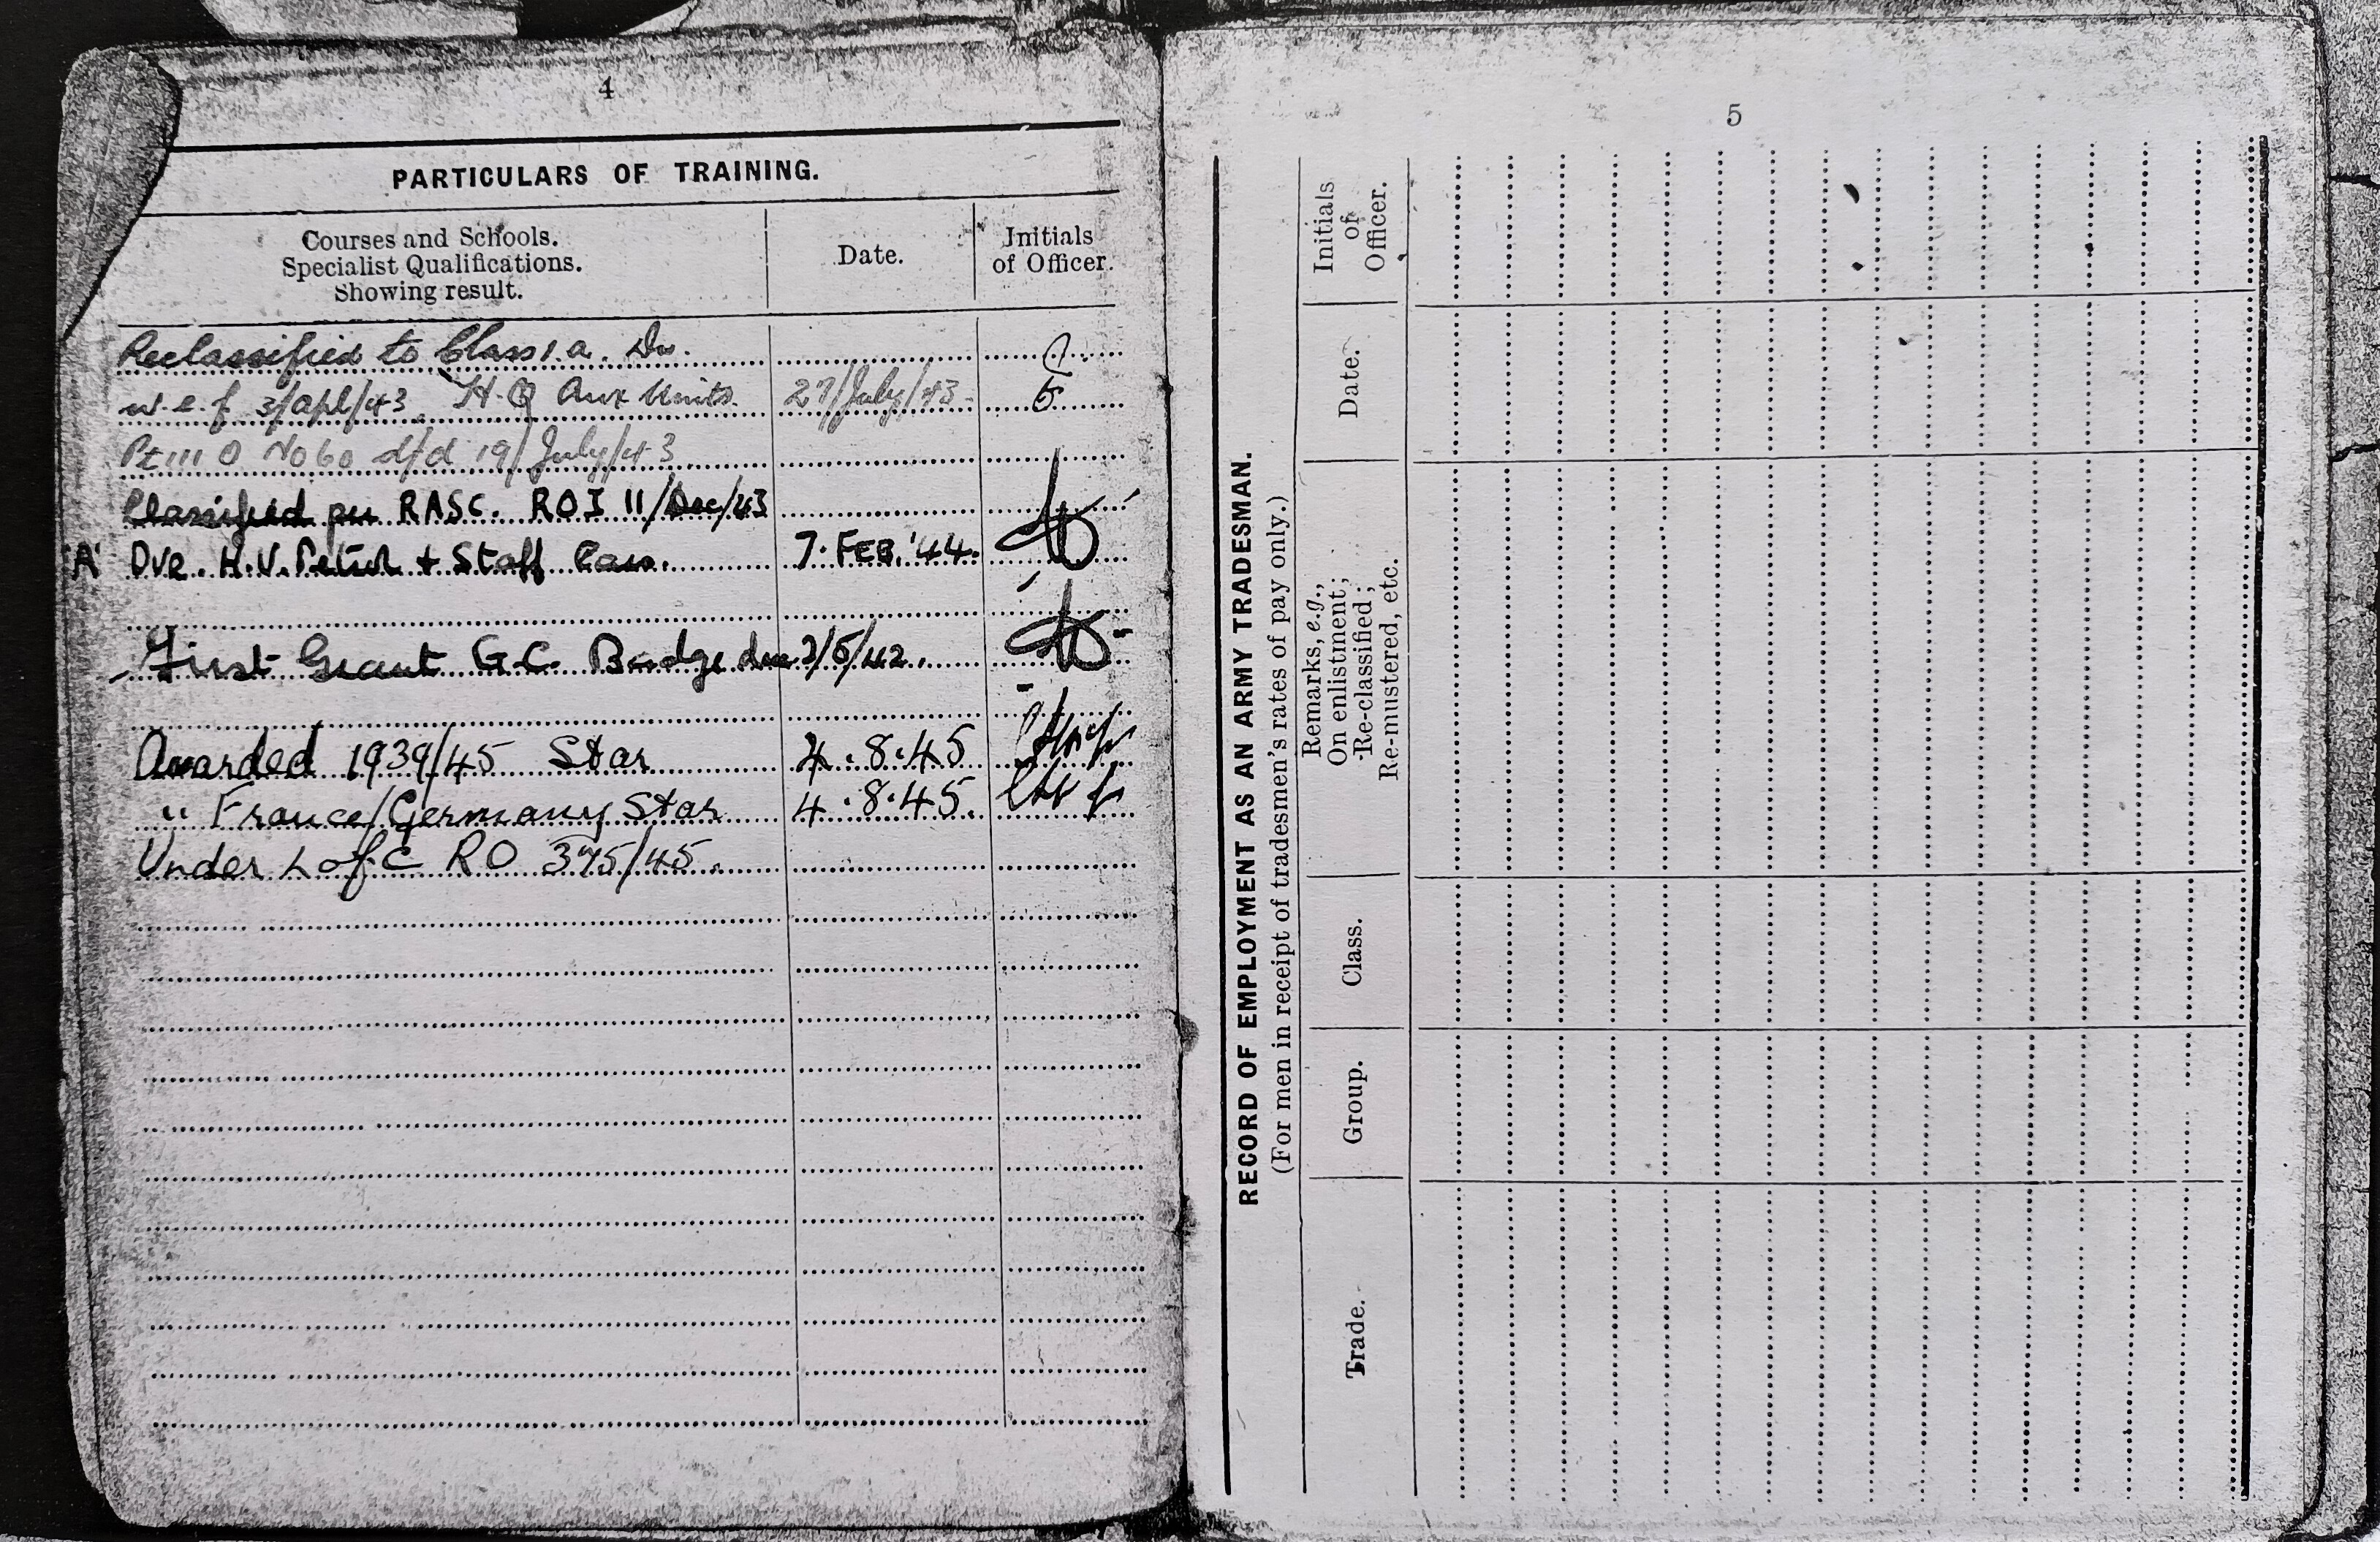 4
PARTICULARS OF TRAINING.
Courses and Schools.
Specialist Qualifications.
Showing result.
Date.
Initials
of Officer.
Reclassified to Class 1 a. Dvr.
w.e.f 3/apl/43. H.Q Aux Units. 27/July/43-
Pt III O No 60 d/d 19/July/43
Classified per RASC. ROI 11/Dec/43
'A' Dvr. H.V. Petrol + Staff Cars. 7. FEB. '44.
First Grant G.C. Badge due 2/5/42.
Awarded 1939/45 Star 4.8.45
" France/Germany Star 4.8.45.
Under L of C RO 375/45.
5
RECORD OF EMPLOYMENT AS AN ARMY TRADESMAN.
(For men in receipt of tradesmen's rates of pay only.)
Trade.
Group.
Class.
Remarks, e.g.,
On enlistment;
Re-classified;
Re-mustered, etc.
Date.
Initials
of
Officer.